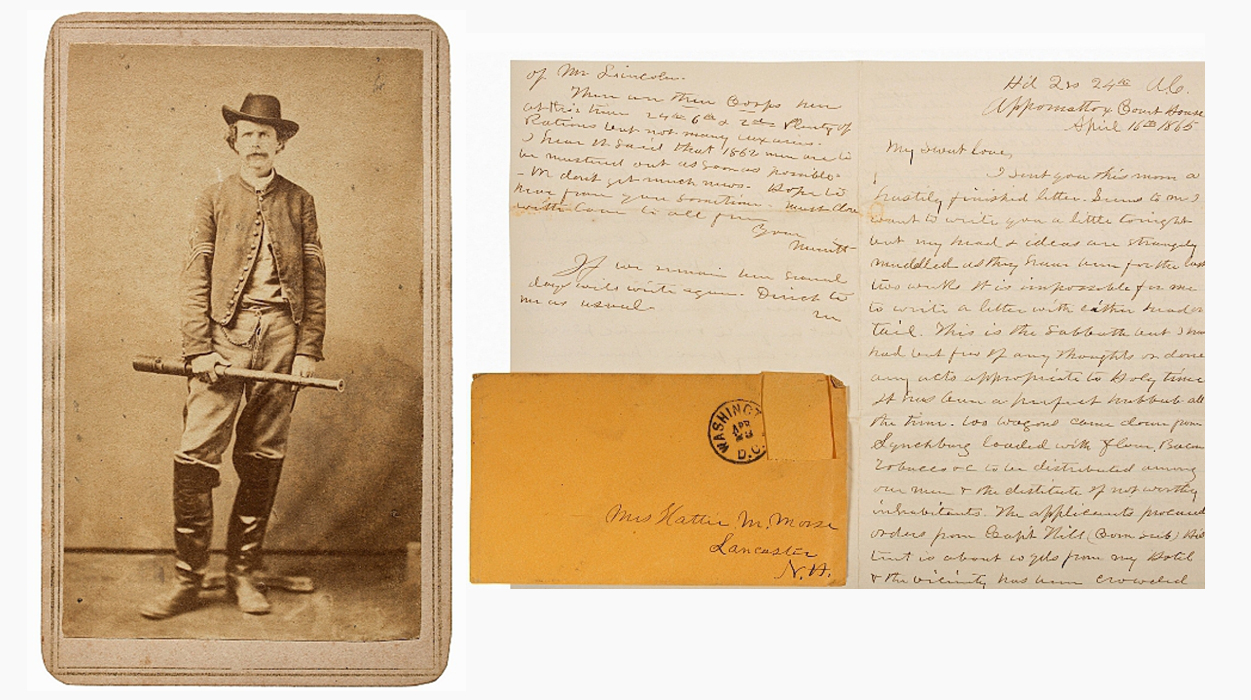 of Mr Lincoln.
There are three Corps here
at this time 24th 6th & 2nd Plenty of
Rations but not many luxuries.
I hear it said that 1862 men are to
be mustered out as soon as possible
- We dont get much news. Hope to
hear from you sometime. Must close
with love to all from
Your
Merritt
If we remain here several
days will write again. Direct to
me as usual.
Hd Qrs 24th A.C.
Appomattox Court House
April 16th 1865
My sweet love,
I sent you this morn a
hastily finished letter. Seems to me I
want to write you a little tonight
but my head & ideas are strangely
muddled as they have been for the last
two weeks It is impossible for me
to write a letter with either head or
tail. This is the Sabbath but I have
had but few if any thoughts or done
any acts appropriate to Holy time
It has been a perfect hubbub all
the time. wagons came down from
Lynchburg loaded with flour, Bacon
Tobacco &c to be distributed among
our men & the destitute if not worthy
inhabitants. The applicants procured
orders from Capt Hill (Com Sub) His
tent is about yds from my Hotel
& the vicinity has been crowded
WASHINGT
APR
D.C.
Mrs Hattie M. Morse
Lancaster
N.H.